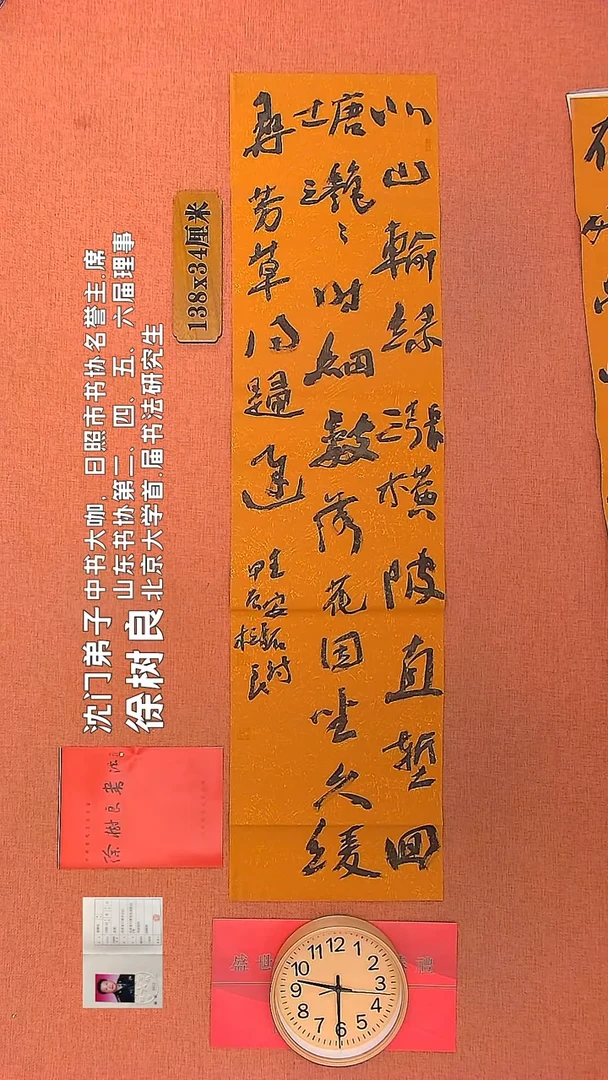 北山輸綠漲橫陂直塹回
塘灔〻时細數落花因坐久緩
尋芳草得歸遲
王安石诗
甲辰樹良
138x34厘米
沈门弟子 中书大咖、日照市书协名誉主席
山东书协第二、四、五、六届理事
徐树良 北京大学首届书法研究生
徐樹良書法
12 1 2 3 4 5 6 7 8 9 10 11